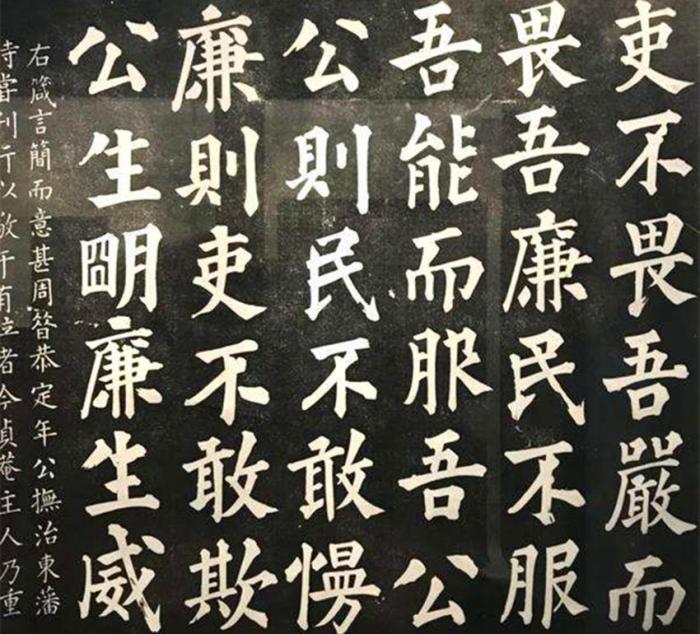 吏不畏吾嚴而
畏吾廉民不服
吾能而服吾公
公則民不敢慢
廉則吏不敢欺
公生朙廉生威
右箴言簡而意甚周昔恭定年公撫治東藩
嘗刊行以于有位者今貞菴主人乃重